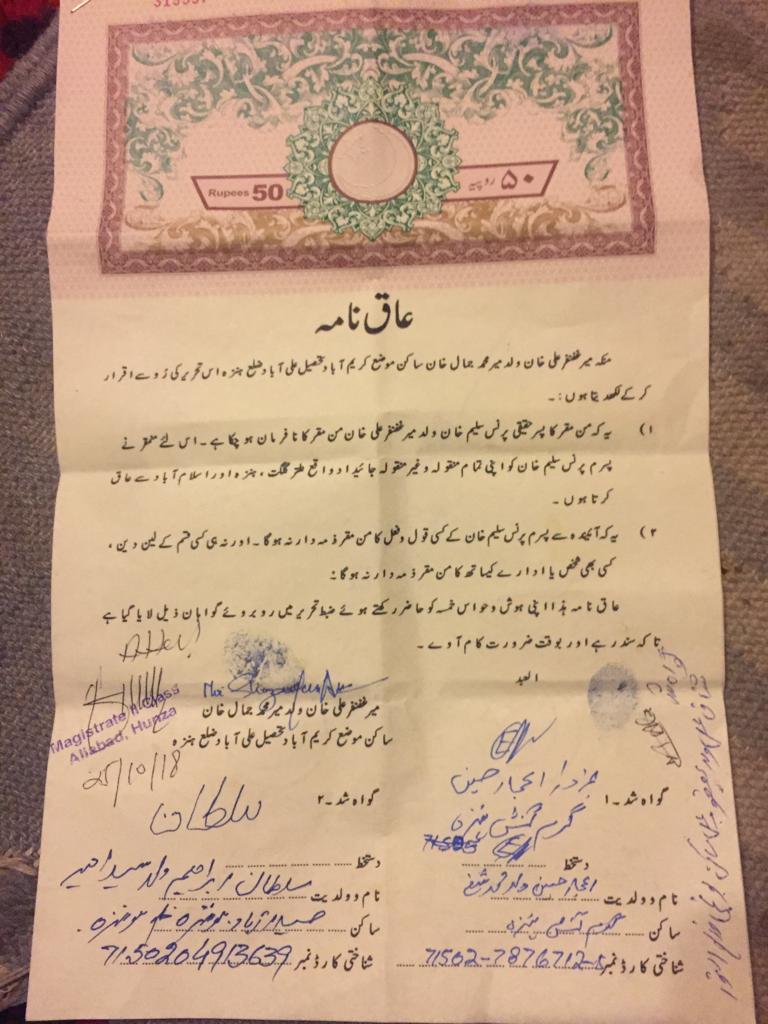 Rupees 50
۵۰ روپیہ
عاق نامہ
منکہ میر غضنفر علی خان ولد میر محمد جمال خان ساکن موضع کریم آباد تحصیل علی آباد ضلع ہنزہ اس تحریر کی رُو سے اقرار
کر کے لکھ دیتا ہوں:۔
۱) یہ کہ من مقر کا پسر حقیقی پرنس سلیم خان ولد میر غضنفر علی خان من مقر کا نافرمان ہو چکا ہے۔ اس لئے منمقر نے
پسرم پرنس سلیم خان کو اپنی تمام منقولہ و غیر منقولہ جائیداد واقع گلگت، ہنزہ اور اسلام آباد سے عاق
کرتا ہوں۔
۲) یہ کہ آئیندہ سے پسرم پرنس سلیم خان کے کسی قول و فعل کا من مقر ذمہ دار نہ ہوگا۔ اور نہ ہی کسی قسم کے لین دین،
کسی بھی شخص یا ادارے کیساتھ کا من مقر ذمہ دار نہ ہوگا:
عاق نامہ ہذا اپنی ہوش و حواس خمسہ کو حاضر رکھتے ہوئے ضبط تحریر میں روبروئے گواہان ذیل لایا گیا ہے
تاکہ سند رہے اور بوقت ضرورت کام آوے۔
العبد
میر غضنفر علی خان ولد میر محمد جمال خان
ساکن موضع کریم آباد تحصیل علی آباد ضلع ہنزہ
Magistrate II Class
Aliabad, Hunza
25/10/18
گواہ شد۔۱
اعجاز حسین
ہنزہ
دستخط
نام و ولدیت اعجاز حسین ولد محمد شفیع
ساکن ہنزہ
شناختی کارڈ نمبر 71502-7876712-5
گواہ شد۔۲
سلطان
دستخط
نام و ولدیت سلطان ابراہیم ولد سید امیر
ساکن
شناختی کارڈ نمبر 7150204913639